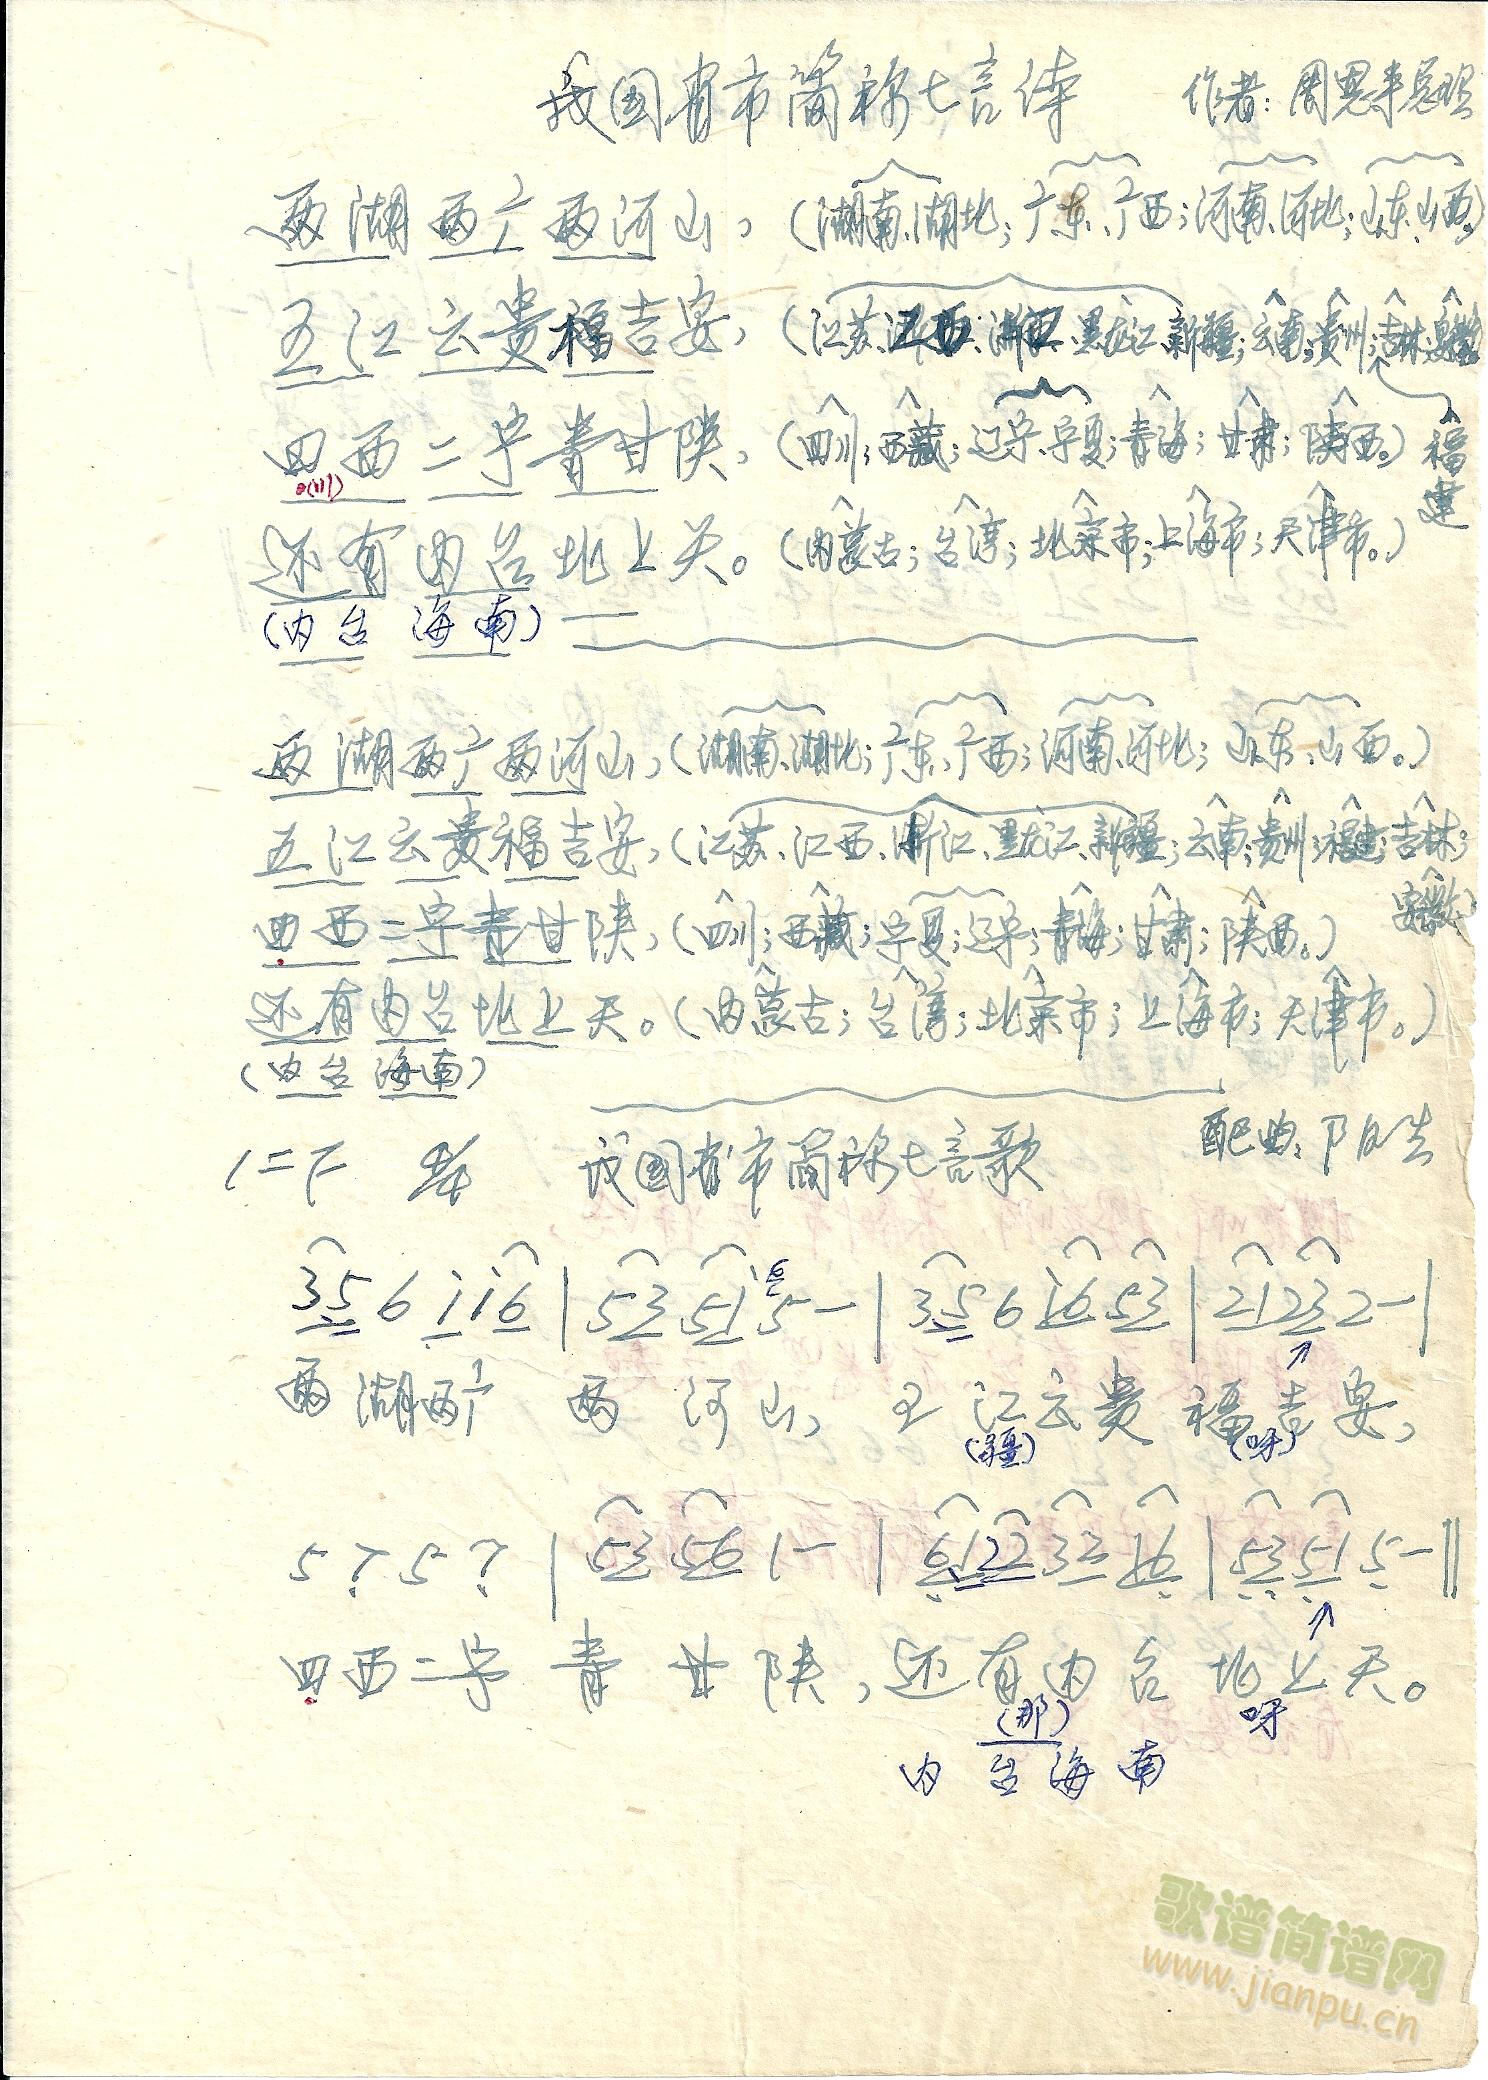 我国省市简称七言体 作者：周恩来总理
两湖两广两河山，（湖南、湖北；广东、广西；河南、河北；山东、山西。）
五江云贵福吉安，（江苏、江西、浙江、黑龙江、新疆；云南；贵州；吉林；安徽
四西二宁青甘陕，（四川；西藏；辽宁、宁夏；青海；甘肃；陕西。）福建
(川)
还有内台北上天。（内蒙古；台湾；北京市；上海市；天津市。）
（内台海南）
两湖两广两河山，（湖南、湖北；广东、广西；河南、河北；山东、山西。）
五江云贵福吉安，（江苏、江西、浙江、黑龙江、新疆；云南；贵州；福建；吉林；
安徽）
四西二宁青甘陕，（四川；西藏；宁夏；辽宁；青海；甘肃；陕西。）
还有内台北上天。（内蒙古；台湾；北京市；上海市；天津市。）
（内台海南）
1=F 4/4 我国省市简称七言歌 配曲：阳生
35 6 i i6 | 53 5i 5 - | 35 6 i6 53 | 21 23 2 - |
两湖两广 两河山，五江云贵福吉安，
(疆) (呀)
5 ? 5 ? | 53 56 1 - | 6122 33 16 | 53 51 5 - ‖
四西二宁青甘陕，还有内台北上天。
(那) 呀
内台海南
歌谱简谱网
www.jianpu.cn